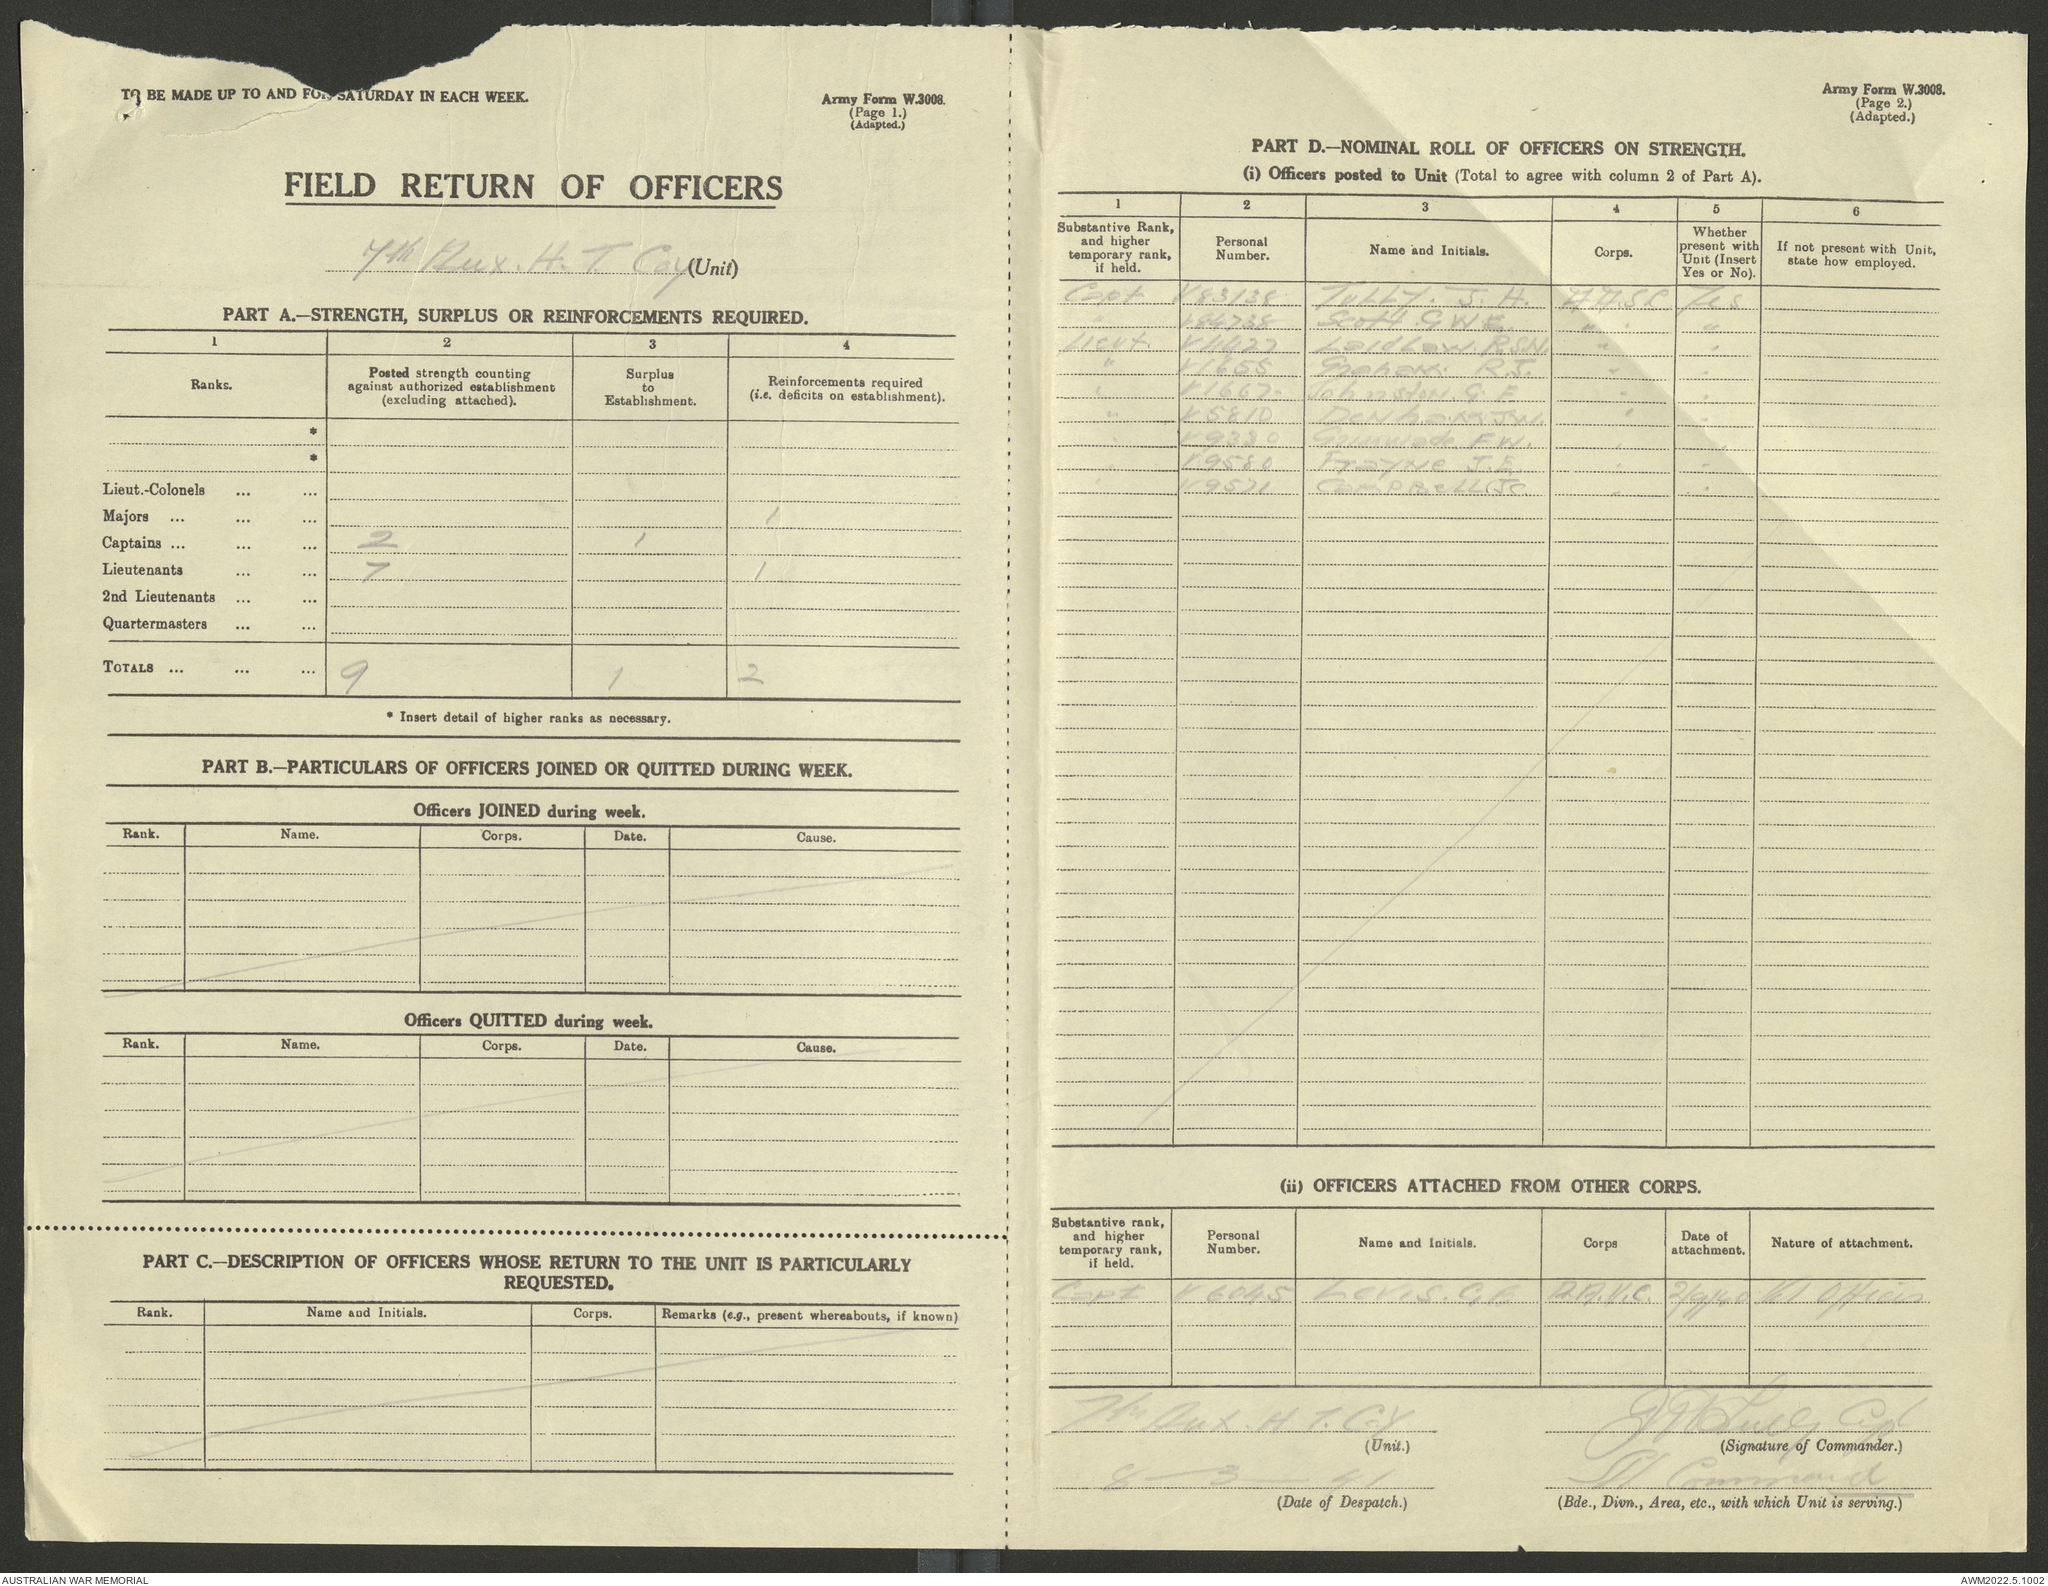 TO BE MADE UP TO AND FOR SATURDAY IN EACH WEEK.
Army Form W.3008.
(Page 1.)
(Adapted.)
FIELD RETURN OF OFFICERS
7th Aux. H. T. Coy (Unit)
PART A.—STRENGTH, SURPLUS OR REINFORCEMENTS REQUIRED.
1 2 3 4
Ranks. Posted strength counting against authorized establishment (excluding attached). Surplus to Establishment. Reinforcements required (i.e. deficits on establishment).
*
*
Lieut.-Colonels ... ...
Majors ... ... ... 1
Captains ... ... ... 2 1
Lieutenants ... ... 7 1
2nd Lieutenants ... ...
Quartermasters ... ...
TOTALS ... ... ... 9 1 2
* Insert detail of higher ranks as necessary.
PART B.—PARTICULARS OF OFFICERS JOINED OR QUITTED DURING WEEK.
Officers JOINED during week.
Rank. Name. Corps. Date. Cause.
Officers QUITTED during week.
Rank. Name. Corps. Date. Cause.
PART C.—DESCRIPTION OF OFFICERS WHOSE RETURN TO THE UNIT IS PARTICULARLY
REQUESTED.
Rank. Name and Initials. Corps. Remarks (e.g., present whereabouts, if known)
Army Form W.3008.
(Page 2.)
(Adapted.)
PART D.—NOMINAL ROLL OF OFFICERS ON STRENGTH.
(i) Officers posted to Unit (Total to agree with column 2 of Part A).
1 2 3 4 5 6
Substantive Rank, and higher temporary rank, if held. Personal Number. Name and Initials. Corps. Whether present with Unit (Insert Yes or No). If not present with Unit, state how employed.
Capt V83138 Tully. J. H. A.A.S.C. Yes
" V84738 Scott G W E. " "
Lieut. V4427 Laidlaw. R.S.N. " "
" V1655 Graham. R.J. " "
" V1667 Johnston. G. F. " "
" V5810 Denham J.W. " "
" V9330 F W. " "
" V9580 Frayne J.E. " "
" V9571 Campbell J.C. " "
(ii) OFFICERS ATTACHED FROM OTHER CORPS.
Substantive rank, and higher temporary rank, if held. Personal Number. Name and Initials. Corps Date of attachment. Nature of attachment.
Capt V6045 Lewis. G. A.A.V.C. 2/9/40 Vet Officer
7th Aux. H. T. Coy
(Unit.)
Capt
(Signature of Commander.)
8 — 3 — 41
(Date of Despatch.)
Command
(Bde., Divn., Area, etc., with which Unit is serving.)
AUSTRALIAN WAR MEMORIAL
AWM2022.5.1002